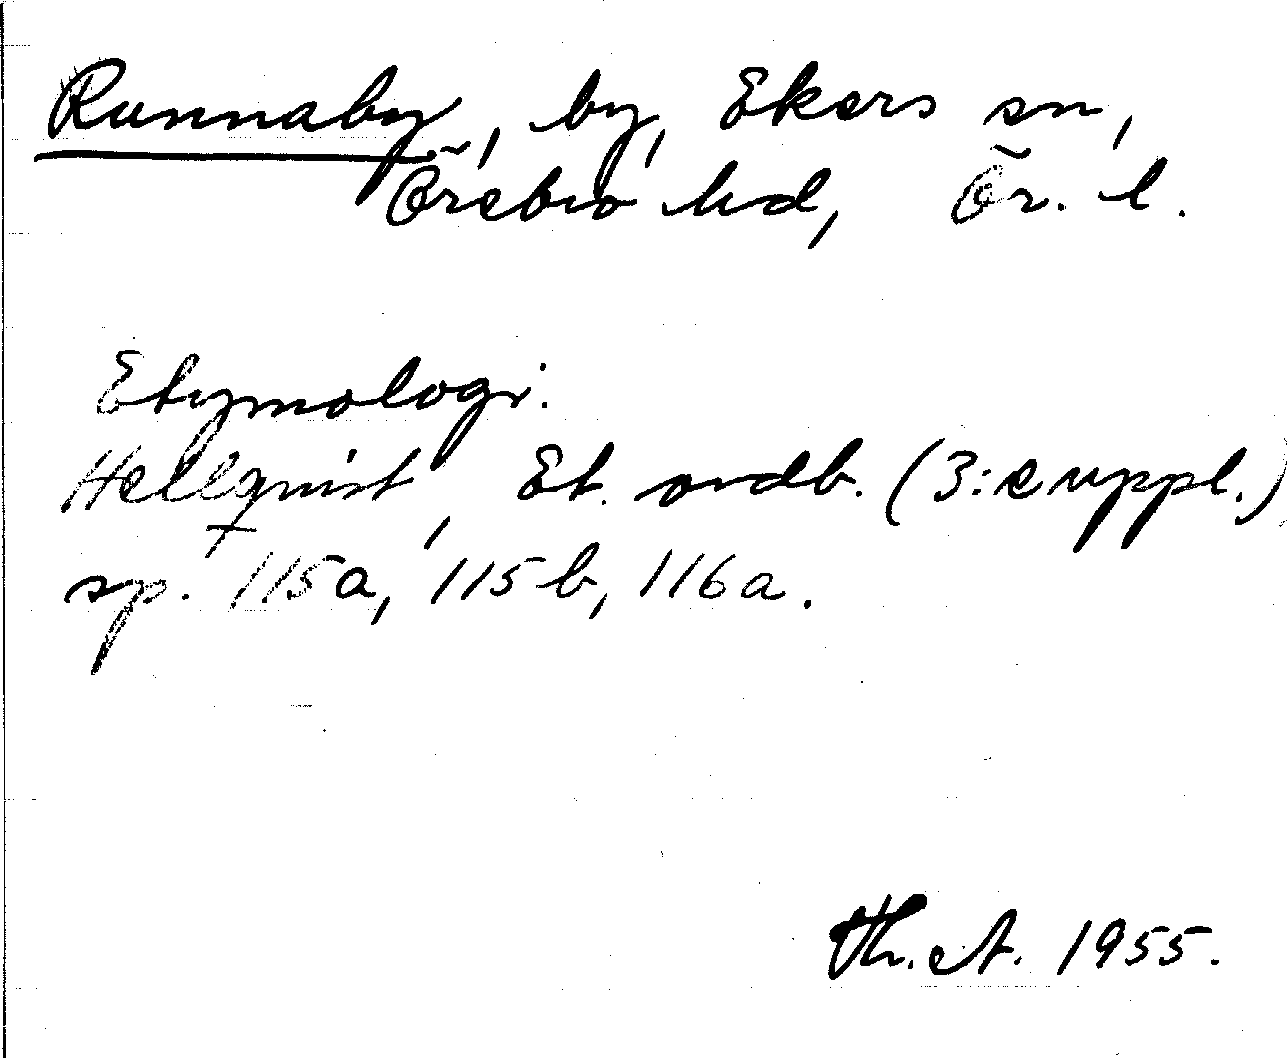 Runnaby, by, Ekers sn,
Örebro hd, Ör. l.
Etymologi.
Hellqvist, Et. ordb. (3:e uppl.)
sp. 115a, 115b, 116a.
Th. A. 1955.